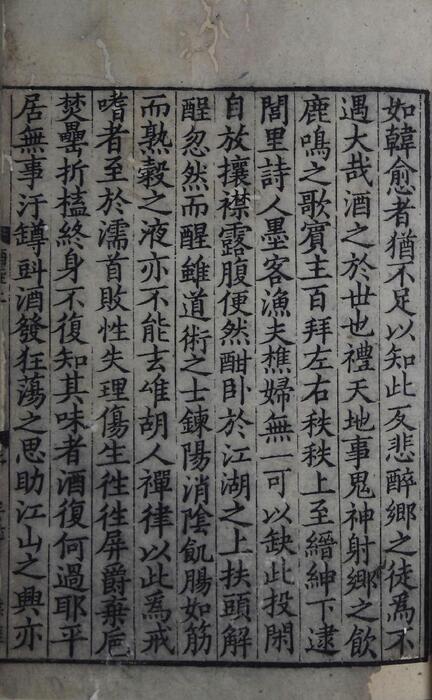 如韓愈者猶不足以知此反悲醉鄉之徒爲不
遇大哉酒之於世也禮天地事鬼神射鄉之飲
鹿鳴之歌賓主百拜左右秩秩上至縉紳下逮
閭里詩人墨客漁夫樵婦無一可以缺此投閑
自放攘襟露腹便然酣卧於江湖之上扶頭解
酲忽然而醒雖道術之士鍊陽消陰飢腸如筋
而熟穀之液亦不能去唯胡人禪律以此爲戒
嗜者至於濡首敗性失理傷生往往屏爵棄巵
焚罍折榼終身不復知其味者酒復何過耶平
居無事汙罇斗酒發狂蕩之思助江山之興亦